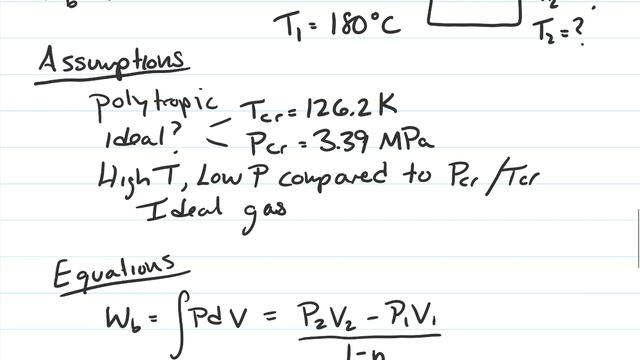 T₁ = 180°C
T₂ = ?
Assumptions
Polytropic
Ideal? Tcr = 126.2 K
Pcr = 3.39 MPa
High T, Low P compared to Pcr/Tcr
Ideal gas
Equations
W_b = ∫PdV = P₂V₂ - P₁V₁
1-n